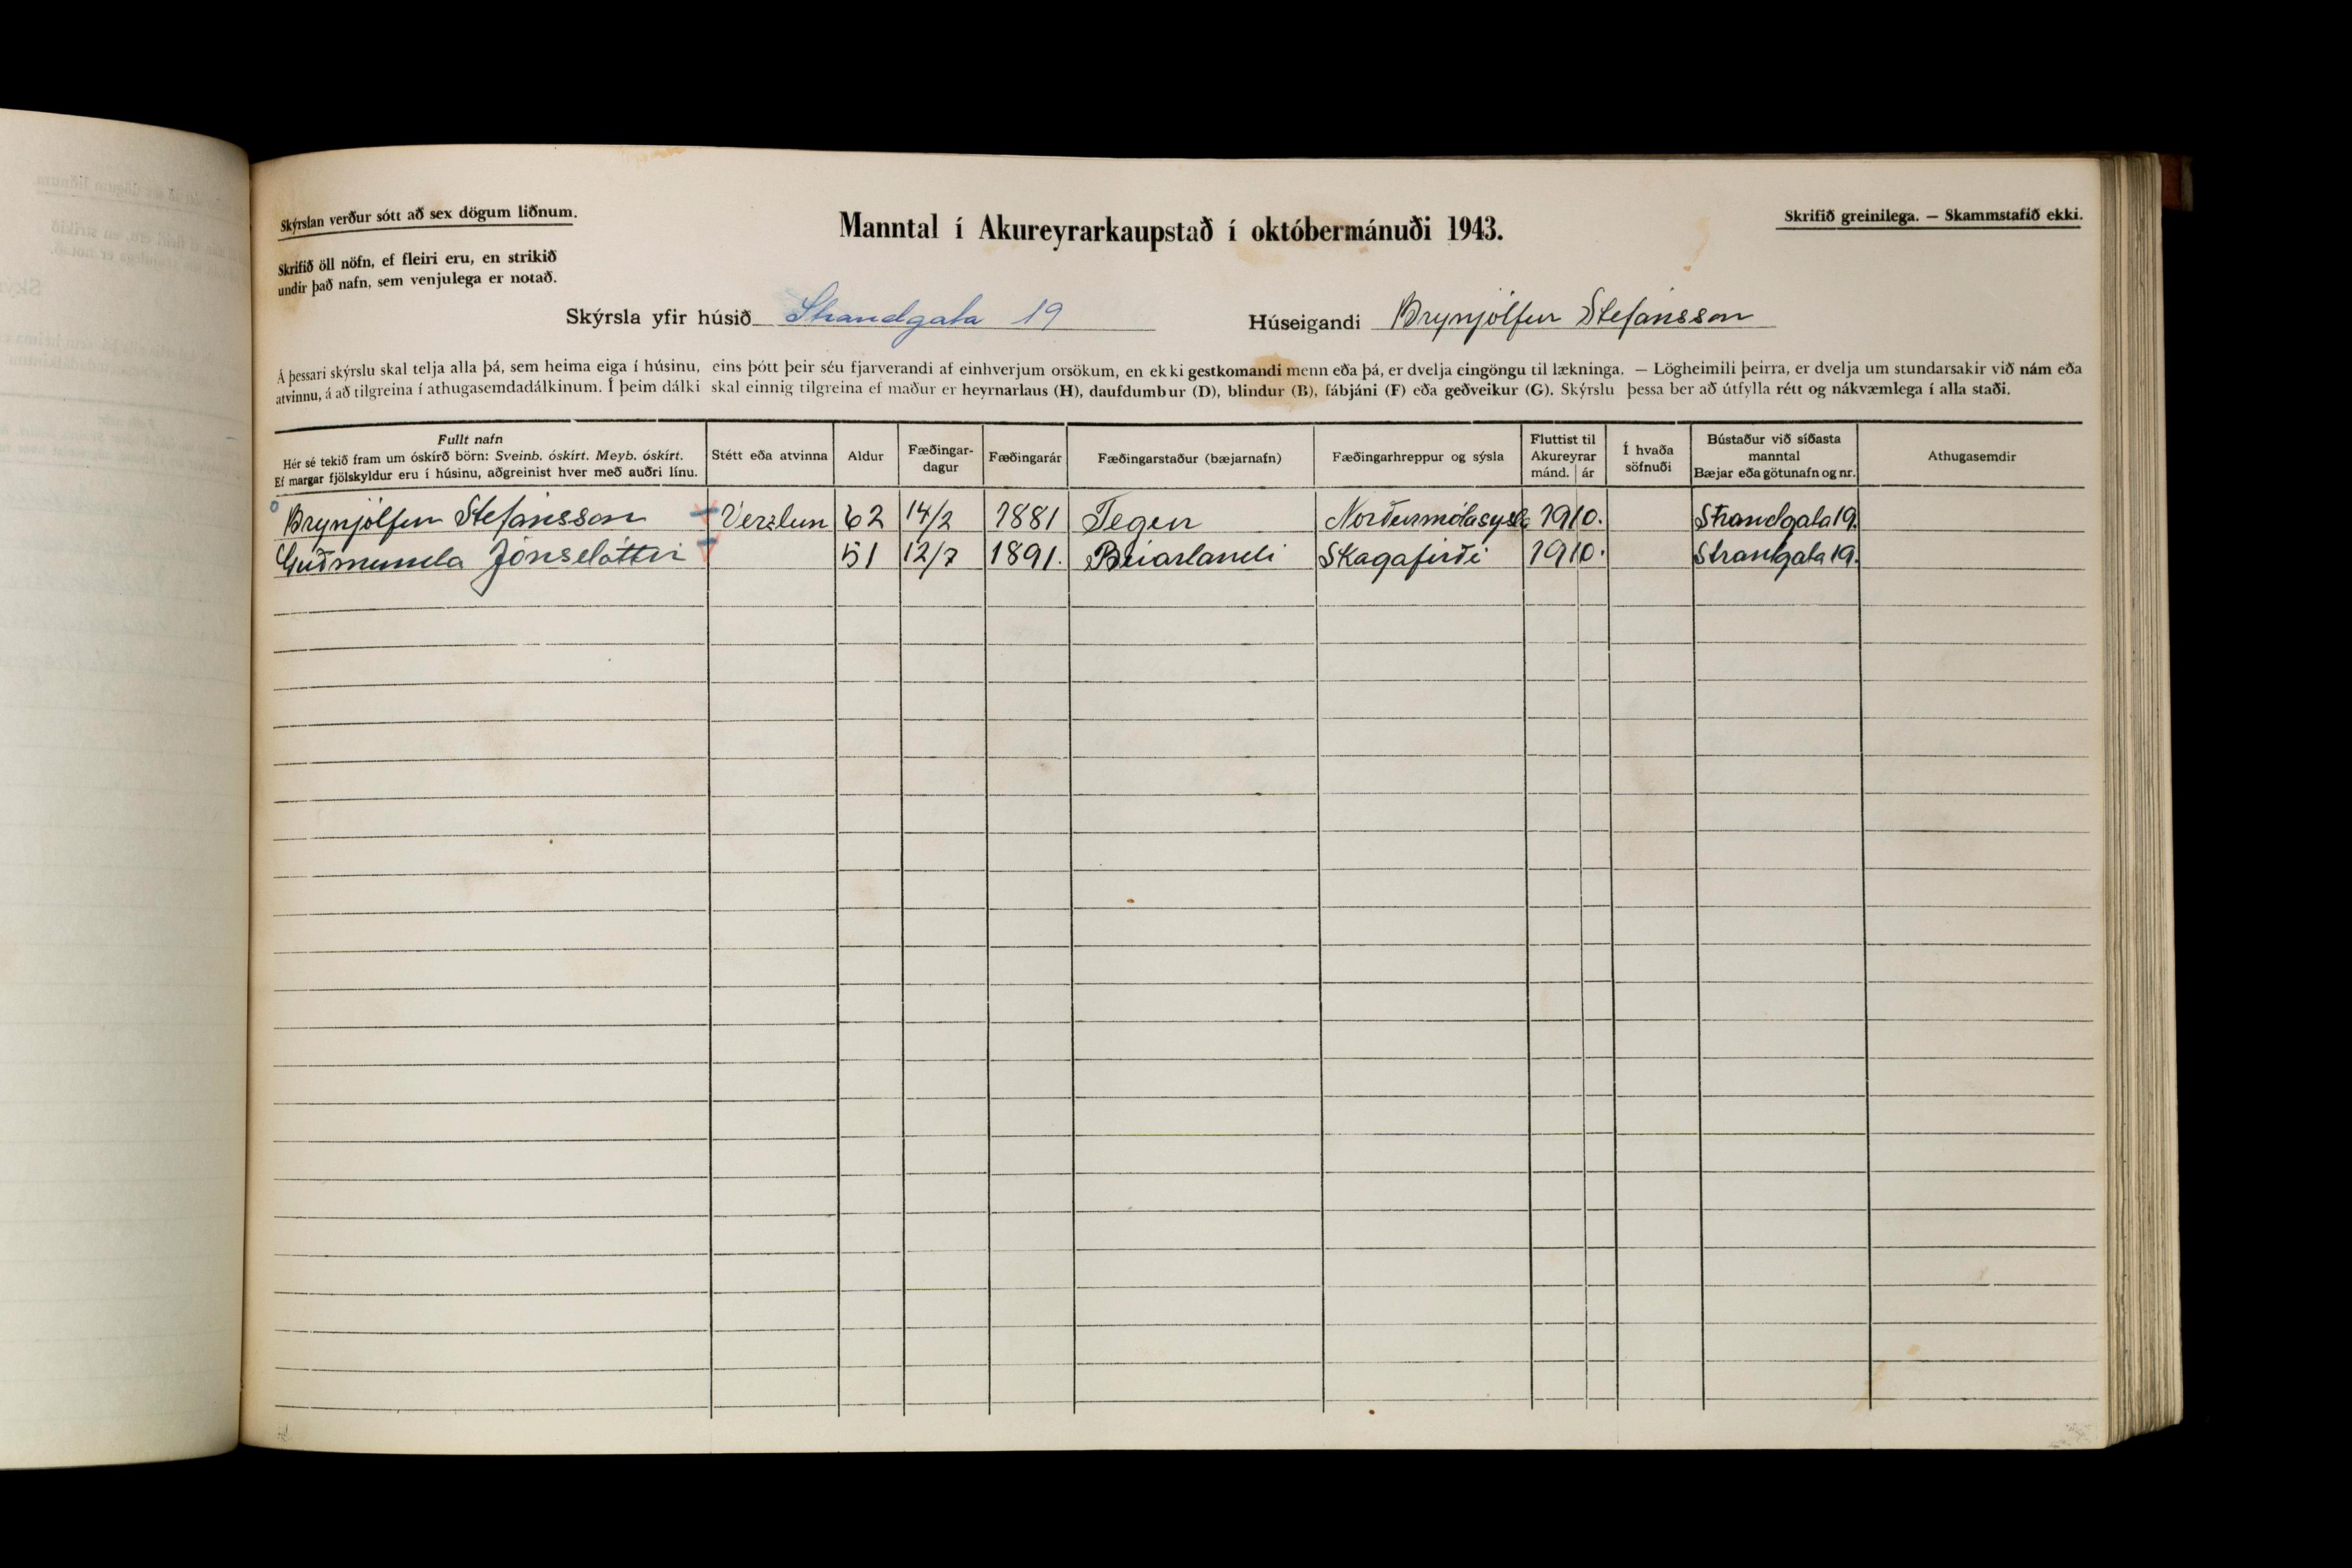 Skýrslan verður sótt að sex dögum liðnum.
Manntal í Akureyrarkaupstað í októbermánuði 1943.
Skrifið greinilega. — Skammstafið ekki.
Skrifið öll nöfn, ef fleiri eru, en strikið
undir það nafn, sem venjulega er notað.
Skýrsla yfir húsið Strandgata 19 Húseigandi Brynjólfur Stefánsson
Á þessari skýrslu skal telja alla þá, sem heima eiga í húsinu, eins þótt þeir séu fjarverandi af einhverjum orsökum, en ekki gestkomandi menn eða þá, er dvelja eingöngu til lækninga. — Lögheimili þeirra, er dvelja um stundarsakir við nám eða
atvinnu, á að tilgreina í athugasemdadálkinum. Í þeim dálki skal einnig tilgreina ef maður er heyrnarlaus (H), daufdumbur (D), blindur (B), fábjáni (F) eða geðveikur (G). Skýrslu þessa ber að útfylla rétt og nákvæmlega í alla staði.
Fullt nafn
Hér sé tekið fram um óskírð börn: Sveinb. óskírt. Meyb. óskírt.
Ef margar fjölskyldur eru í húsinu, aðgreinist hver með auðri línu.
Stétt eða atvinna
Aldur
Fæðingar-
dagur
Fæðingarár
Fæðingarstaður (bæjarnafn)
Fæðingarhreppur og sýsla
Fluttist til
Akureyrar
mánd. ár
Í hvaða
söfnuði
Bústaður við síðasta
manntal
Bæjar eða götunafn og nr.
Athugasemdir
Brynjólfur Stefánsson Verzlun 62 14/2 1881 Teger Norðurmúlasysla 1910. Strandgata 19.
Guðmunda Jónsdóttir 51 12/7 1891. Búarlandi Skagafirði 1910. Strandgata 19.